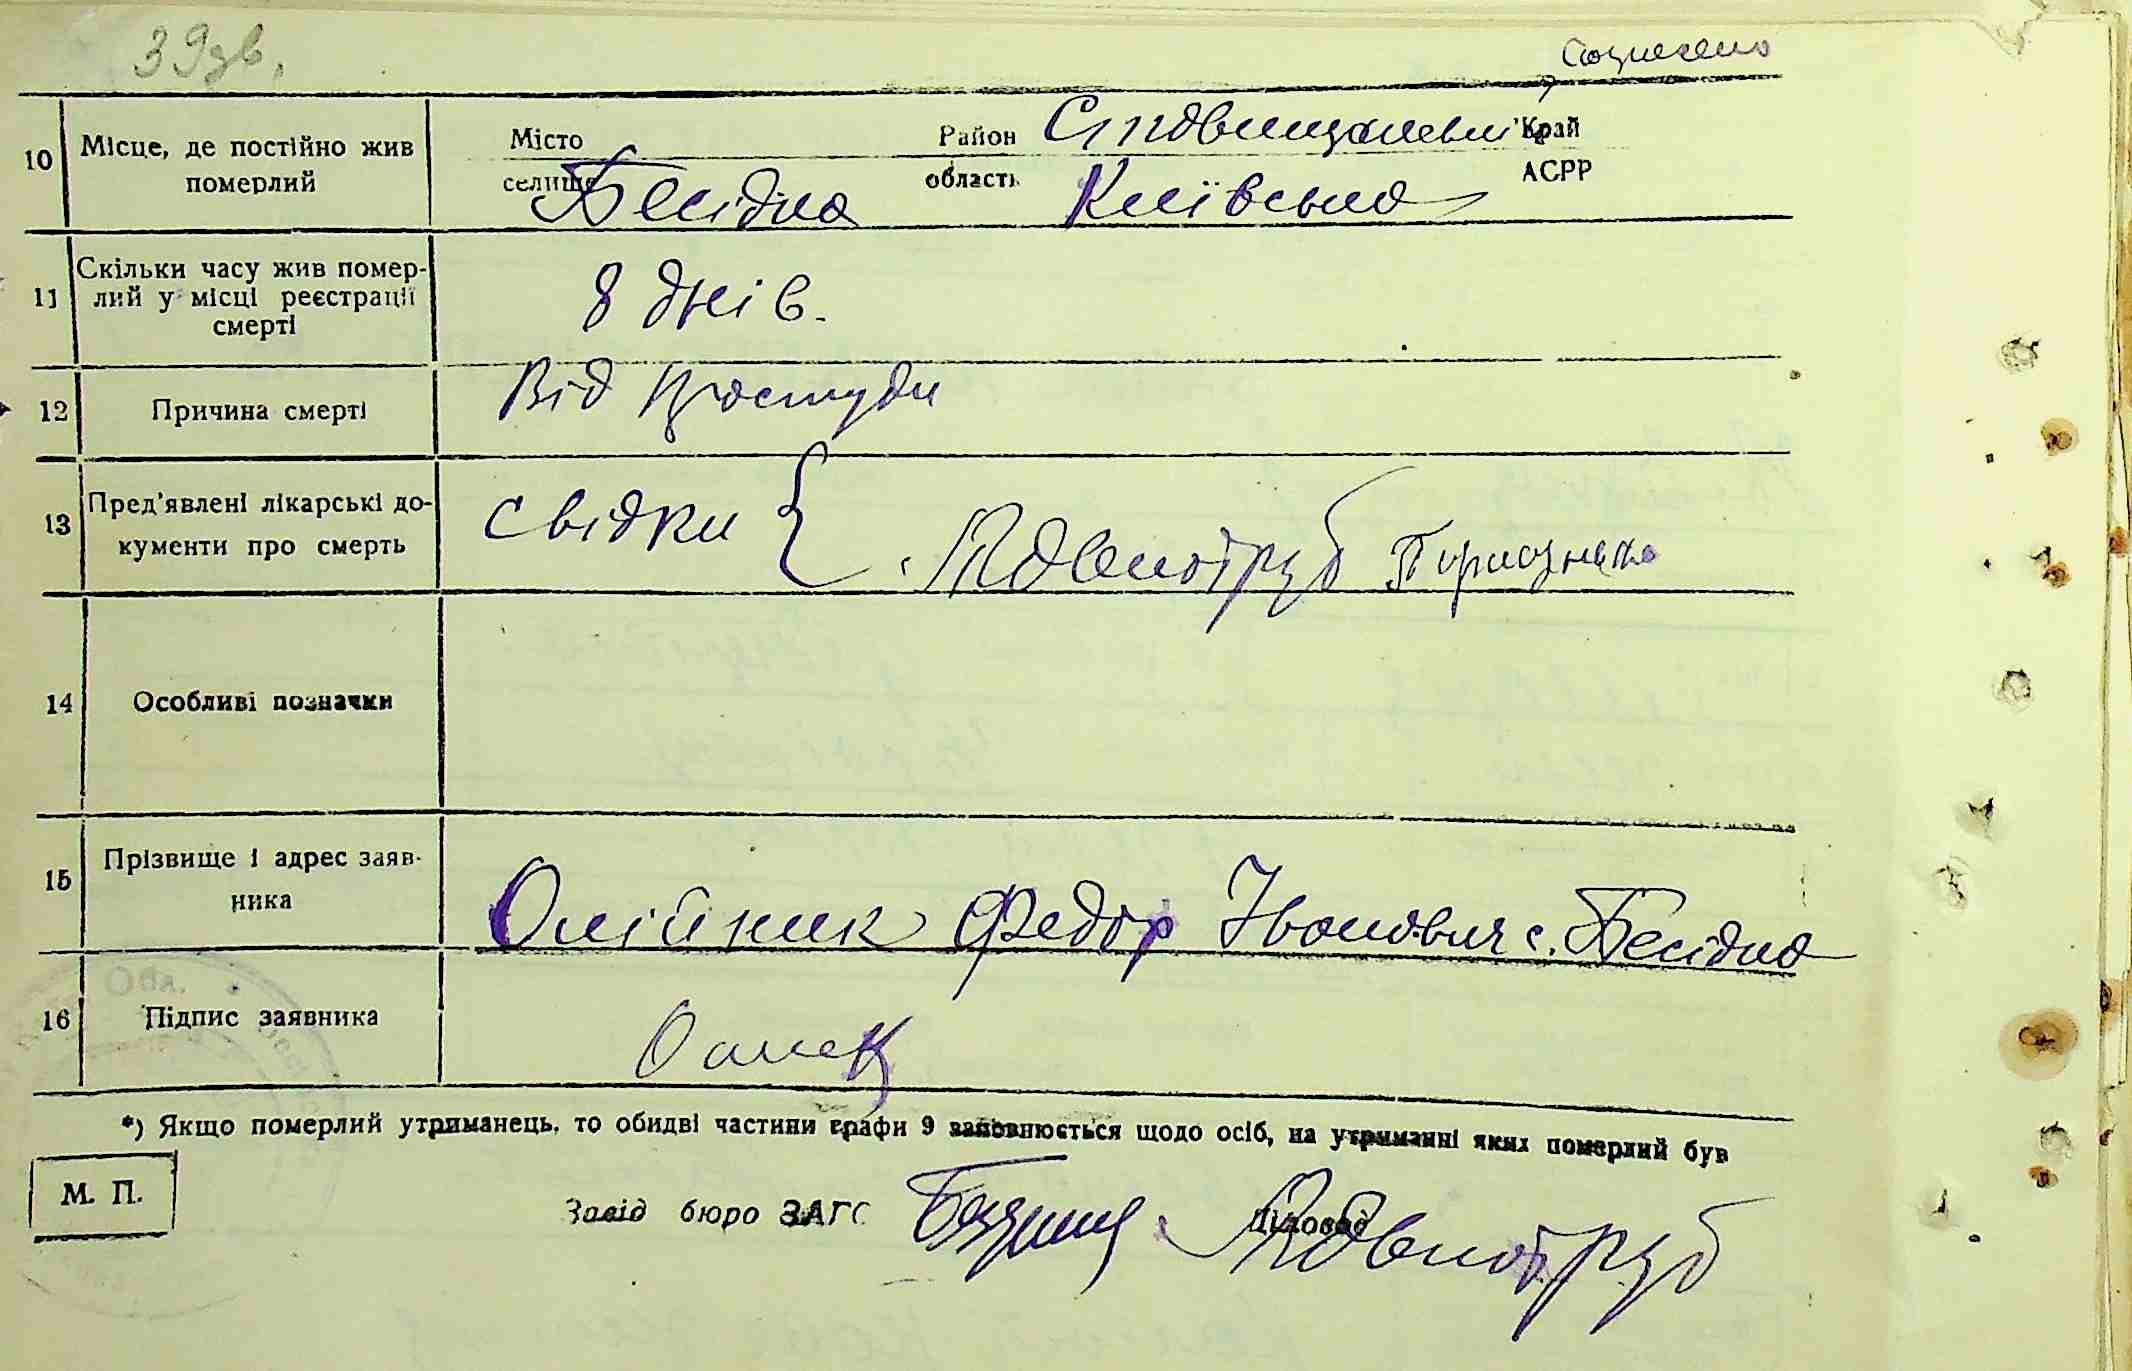 39зв.
10 Місце, де постійно жив померлий Місто селище Бесідка Район область Ставищанський Київська Край АСРР
11 Скільки часу жив помер-
лий у місці реєстрації
смерті 8 днів.
12 Причина смерті Від простуди
13 Пред'явлені лікарські до-
кументи про смерть свідки {
14 Особливі позначки
15 Прізвище і адрес заяв-
ника Олійник Федор Іванович с. Бесідка
16 Підпис заявника
*) Якщо померлий утриманець, то обидві частини графи 9 заповнюється щодо осіб, на утриманні яких померлий був
М. П.
Завід бюро ЗАГС Діловод